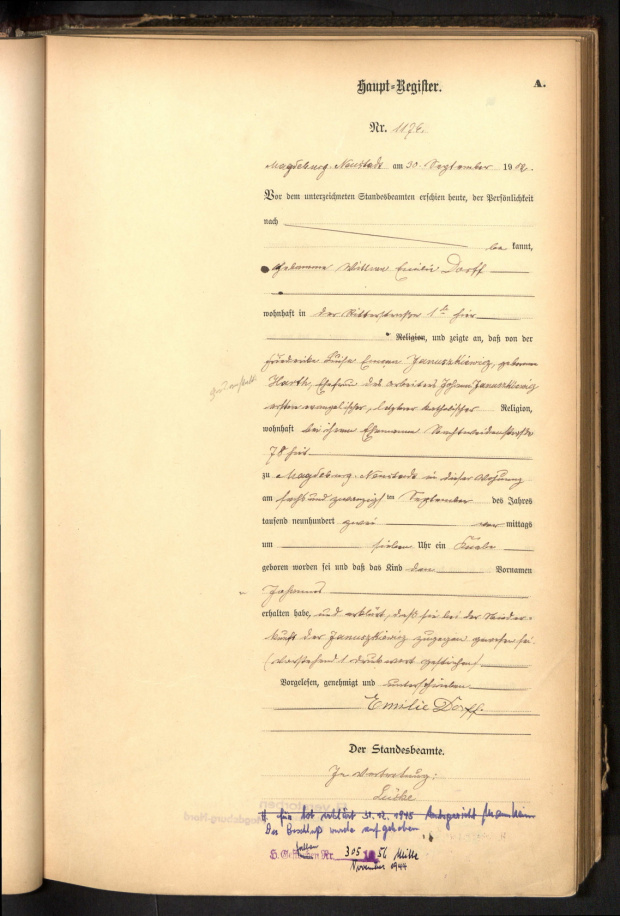 Haupt=Register.
A.
Nr. 1174.
Magdeburg-Neustadt am 30 September 1902.
Vor dem unterzeichneten Standesbeamten erschien heute, der Persönlichkeit
nach
be kannt,
Hebamme Wittwe Emilie Dorff
wohnhaft in der Ritterstraße 1a hier
Religion, und zeigte an, daß von der
Friederike Luise Emma Januszkiewiz, geborene
Harth, Ehefrau des Arbeiters Johann Januszkiewiz
ersten evangelischer, letzter katholischer Religion,
wohnhaft bei ihrem Ehemanne Nachtweidenstraße
78 hier
zu Magdeburg-Neustadt in dieser Wohnung
am sechs und zwanzigsten September des Jahres
tausend neunhundert zwei vor mittags
um sieben Uhr ein Knabe
geboren worden sei und daß das Kind den Vornamen
Johannes
erhalten habe, und erklärt, daß sie bei der Nieder-
kunft der Januszkiewiz zugegen gewesen sei.
(Vorstehend 1 Druckwort gestrichen)
Vorgelesen, genehmigt und unterschrieben
Emilie Dorff.
Der Standesbeamte.
In Vertretung:
für tot erklärt 31.12.1945 Amtsgericht Mannheim
Der Beschluß wurde aufgehoben
gefallen
Nr. 305 1956 Mitte
November 1944